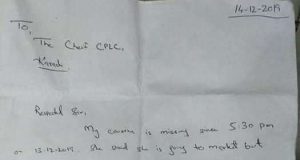 14-12-2019
To,
The Chief CPLC,
Karachi.
Respected Sir,
My cousin is missing since 5:30 pm
on 13-12-2019. She said she is going to market but